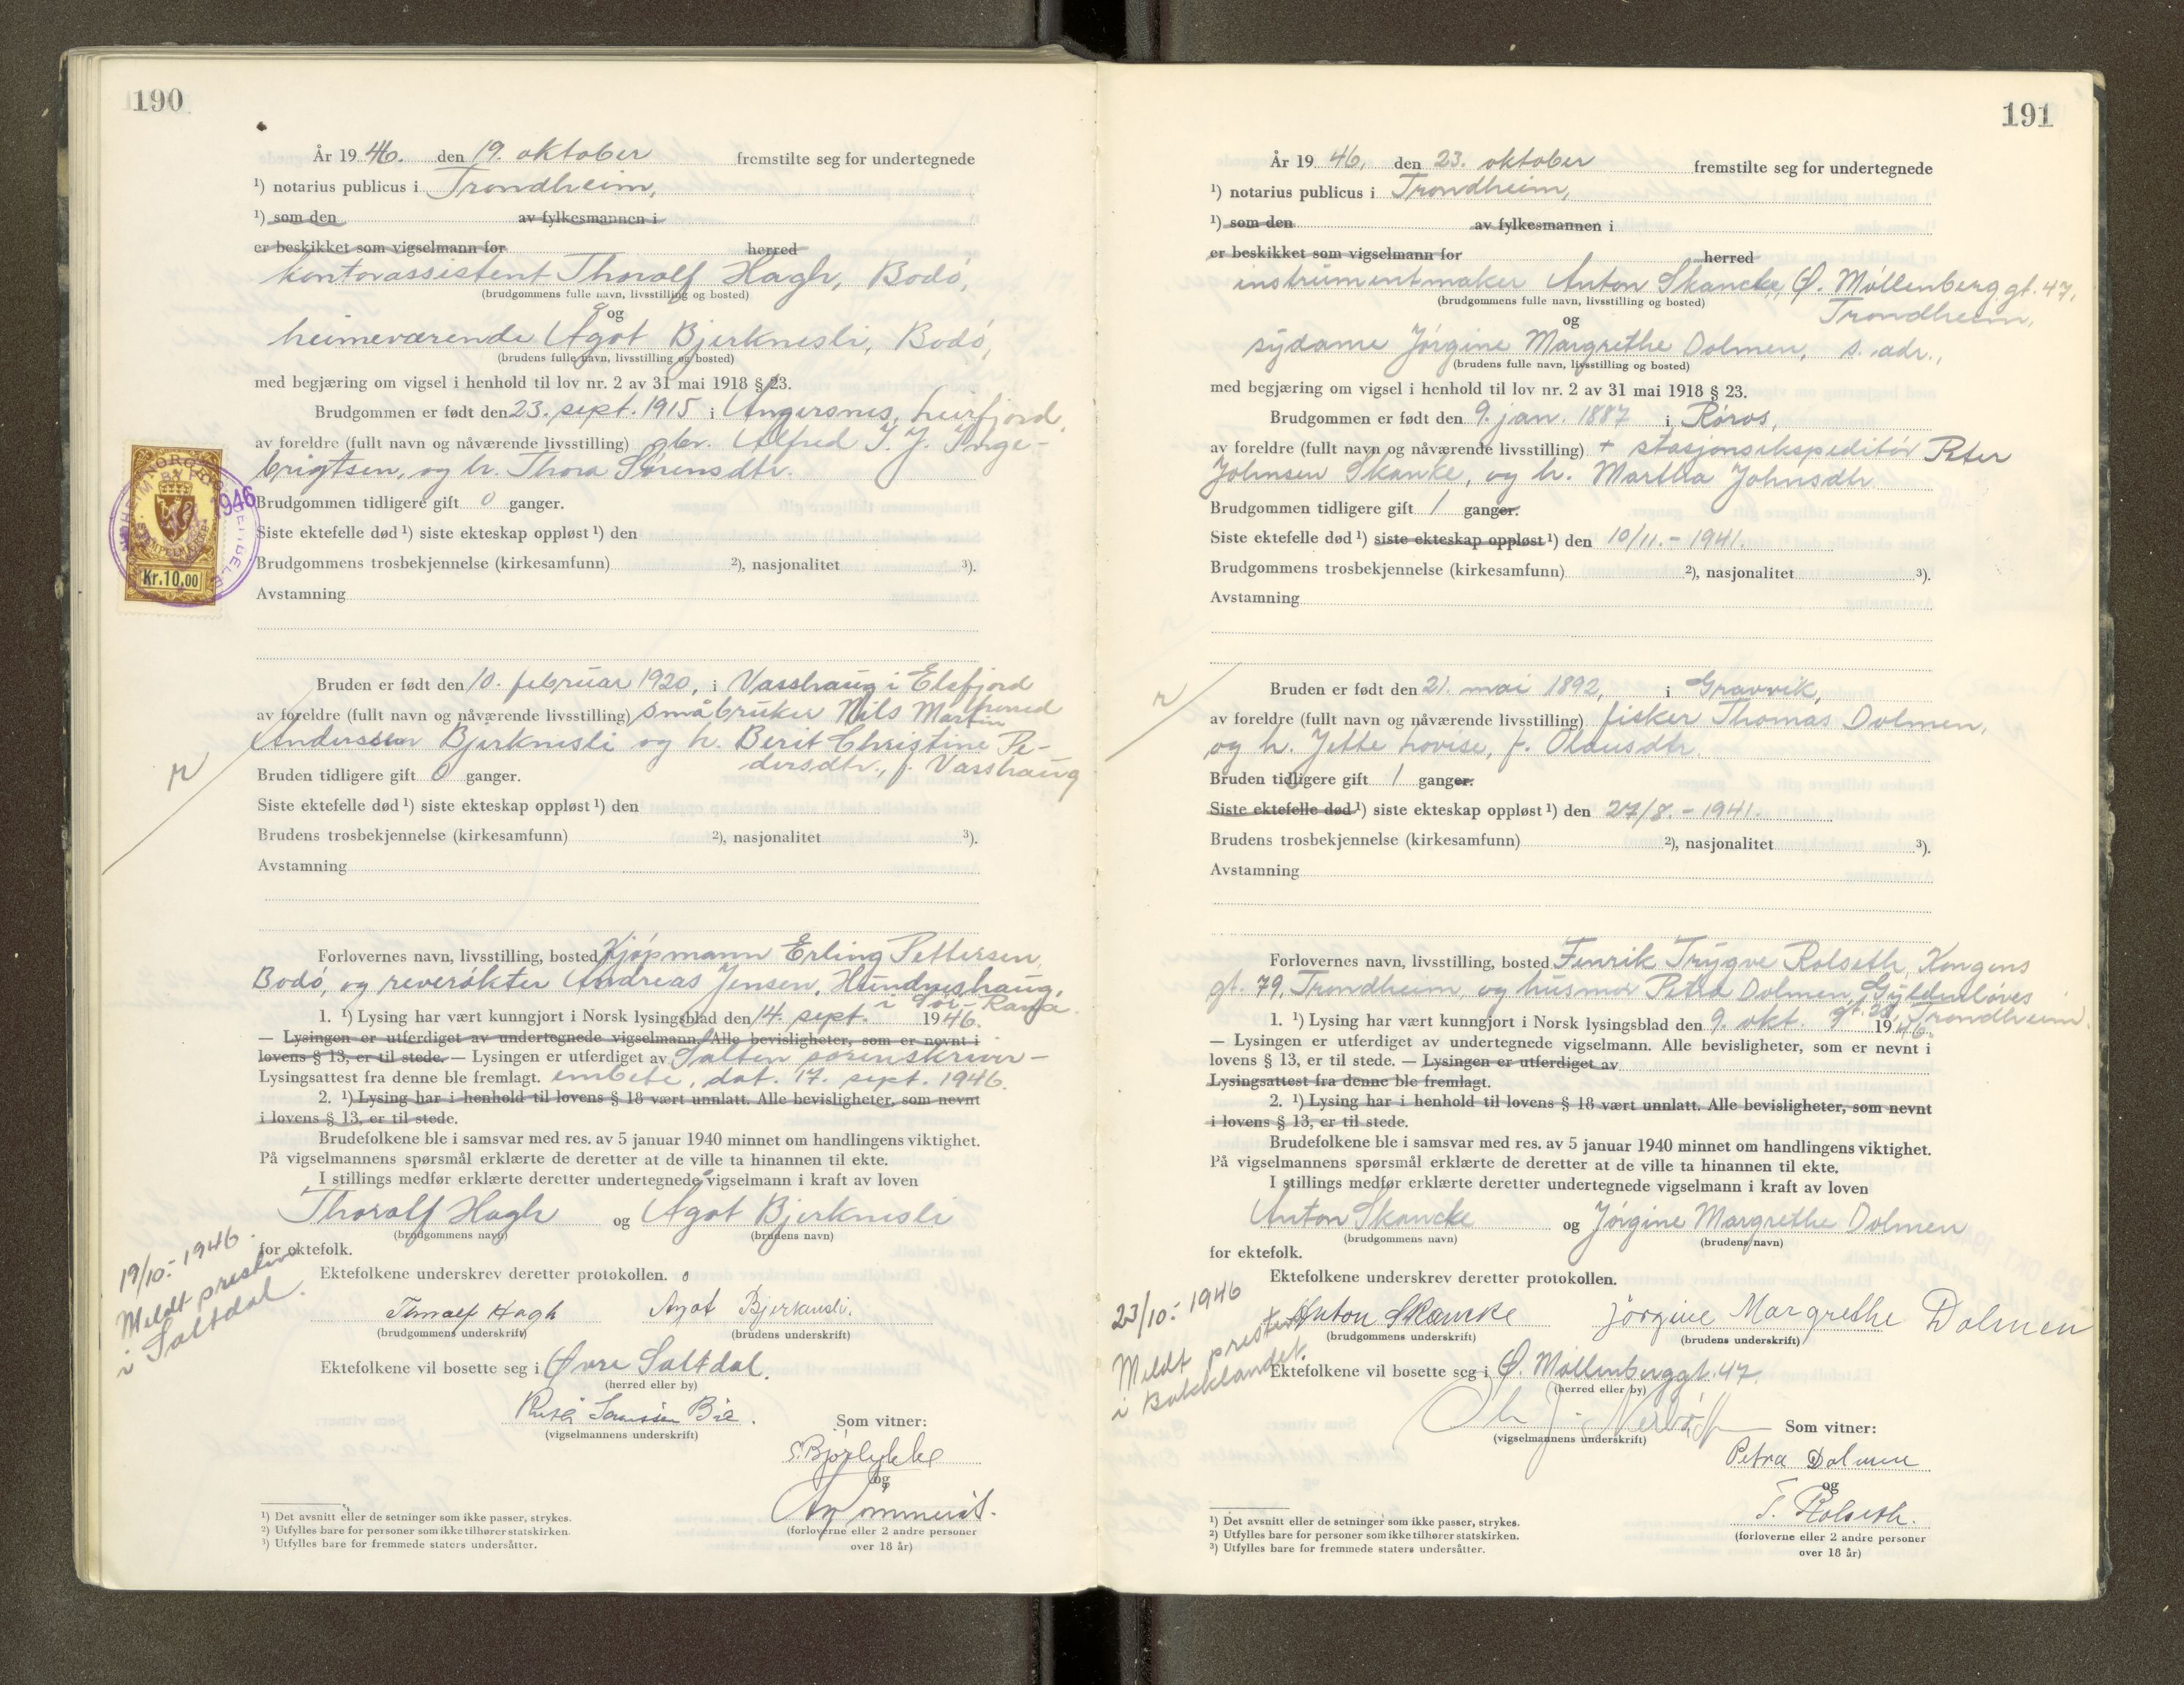 190
År 1946. den 19. oktober fremstilte seg for undertegnede
¹) notarius publicus i Trondheim,
¹) som den av fylkesmannen i
er beskikket som vigselmann for herred
kontorassistent Thoralf Hagh, Bodö,
(brudgommens fulle navn, livsstilling og bosted)
og
heimeværende Ågot Bjerknesli, Bodö,
(brudens fulle navn, livsstilling og bosted)
med begjæring om vigsel i henhold til lov nr. 2 av 31 mai 1918 § 23.
Brudgommen er født den 23. sept. 1915 i Angersnes, Leirfjord,
av foreldre (fullt navn og nåværende livsstilling) gbr. Alfred I. J. Inge-
brigtsen, og h. Thora Sörensdtr.
Brudgommen tidligere gift 0 ganger.
Siste ektefelle død ¹) siste ekteskap oppløst ¹) den
Brudgommens trosbekjennelse (kirkesamfunn) ²), nasjonalitet ³).
Avstamning
1946
Kr.10,00
Bruden er født den 10. februar 1920, i Vasshaug i Elsfjord
herred
av foreldre (fullt navn og nåværende livsstilling) småbruker Nils Martin
Anderssen Bjerknesli og h. Berit Christine Pe-
dersdtr., f. Vasshaug
Bruden tidligere gift 0 ganger.
Siste ektefelle død ¹) siste ekteskap oppløst ¹) den
Brudens trosbekjennelse (kirkesamfunn) ²), nasjonalitet ³).
Avstamning
Forlovernes navn, livsstilling, bosted Kjöpmann Erling Pettersen,
Bodö, og reverökter Andreas Jensen, Hundneshaug,
i Sör-Rana.
1. ¹) Lysing har vært kunngjort i Norsk lysingsblad den 14. sept. 1946.
— Lysingen er utferdiget av undertegnede vigselmann. Alle bevisligheter, som er nevnt i
lovens § 13, er til stede. — Lysingen er utferdiget av Salten sorenskriver-
Lysingsattest fra denne ble fremlagt. embete, dat. 17. sept. 1946.
2. ¹) Lysing har i henhold til lovens § 18 vært unnlatt. Alle bevisligheter, som nevnt
i lovens § 13, er til stede.
Brudefolkene ble i samsvar med res. av 5 januar 1940 minnet om handlingens viktighet.
På vigselmannens spørsmål erklærte de deretter at de ville ta hinannen til ekte.
I stillings medfør erklærte deretter undertegnede vigselmann i kraft av loven
Thoralf Hagh og Ågot Bjerknesli
(brudgommens navn) (brudens navn)
for ektefolk.
19/10.- 1946.
Meldt presten
i Saltdal.
Ektefolkene underskrev deretter protokollen.
Thoralf Hagh Ågot Bjerknesli.
(brudgommens underskrift) (brudens underskrift)
Ektefolkene vil bosette seg i Övre Saltdal.
(herred eller by)
(vigselmannens underskrift)
Som vitner:
S. Bjørlykke
og
(forloverne eller 2 andre personer
over 18 år)
¹) Det avsnitt eller de setninger som ikke passer, strykes.
²) Utfylles bare for personer som ikke tilhører statskirken.
³) Utfylles bare for fremmede staters undersåtter.
191
År 1946, den 23. oktober fremstilte seg for undertegnede
¹) notarius publicus i Trondheim,
¹) som den av fylkesmannen i
er beskikket som vigselmann for herred
instrumentmaker Anton Skancke, Ö. Möllenberg gt. 47,
(brudgommens fulle navn, livsstilling og bosted)
Trondheim,
og
sydame Jörgine Margrethe Dolmen, s. adr.,
(brudens fulle navn, livsstilling og bosted)
med begjæring om vigsel i henhold til lov nr. 2 av 31 mai 1918 § 23.
Brudgommen er født den 9. jan. 1887 i Röros,
av foreldre (fullt navn og nåværende livsstilling) + stasjonsekspeditör Peter
Johnsen Skanke, og h. Martha Johnsdtr
Brudgommen tidligere gift 1 ganger.
Siste ektefelle død ¹) siste ekteskap oppløst ¹) den 10/11.- 1941.
Brudgommens trosbekjennelse (kirkesamfunn) ²), nasjonalitet ³).
Avstamning
Bruden er født den 21. mai 1892, i Gravvik,
av foreldre (fullt navn og nåværende livsstilling) fisker Thomas Dolmen,
og h. Jette Lovise, f. Olausdtr.
Bruden tidligere gift 1 ganger.
Siste ektefelle død ¹) siste ekteskap oppløst ¹) den 27/8.- 1941.
Brudens trosbekjennelse (kirkesamfunn) ²), nasjonalitet ³).
Avstamning
Forlovernes navn, livsstilling, bosted Fenrik Trygve Rolseth, Kongens
gt. 79, Trondheim, og husmor Petra Dolmen, Gyldenlöves
gt. 28, Trondheim.
1. ¹) Lysing har vært kunngjort i Norsk lysingsblad den 9. okt. 1946.
— Lysingen er utferdiget av undertegnede vigselmann. Alle bevisligheter, som er nevnt i
lovens § 13, er til stede. — Lysingen er utferdiget av
Lysingsattest fra denne ble fremlagt.
2. ¹) Lysing har i henhold til lovens § 18 vært unnlatt. Alle bevisligheter, som nevnt
i lovens § 13, er til stede.
Brudefolkene ble i samsvar med res. av 5 januar 1940 minnet om handlingens viktighet.
På vigselmannens spørsmål erklærte de deretter at de ville ta hinannen til ekte.
I stillings medfør erklærte deretter undertegnede vigselmann i kraft av loven
Anton Skancke og Jörgine Margrethe Dolmen
(brudgommens navn) (brudens navn)
for ektefolk.
Ektefolkene underskrev deretter protokollen.
23/10.- 1946
Meldt presten
i Bakklandet.
Anton Skancke Jörgine Margrethe Dolmen
(brudgommens underskrift) (brudens underskrift)
Ektefolkene vil bosette seg i Ö. Möllenberggt. 47.
(herred eller by)
(vigselmannens underskrift)
Som vitner:
Petra Dolmen
og
T. Rolseth.
(forloverne eller 2 andre personer
over 18 år)
¹) Det avsnitt eller de setninger som ikke passer, strykes.
²) Utfylles bare for personer som ikke tilhører statskirken.
³) Utfylles bare for fremmede staters undersåtter.